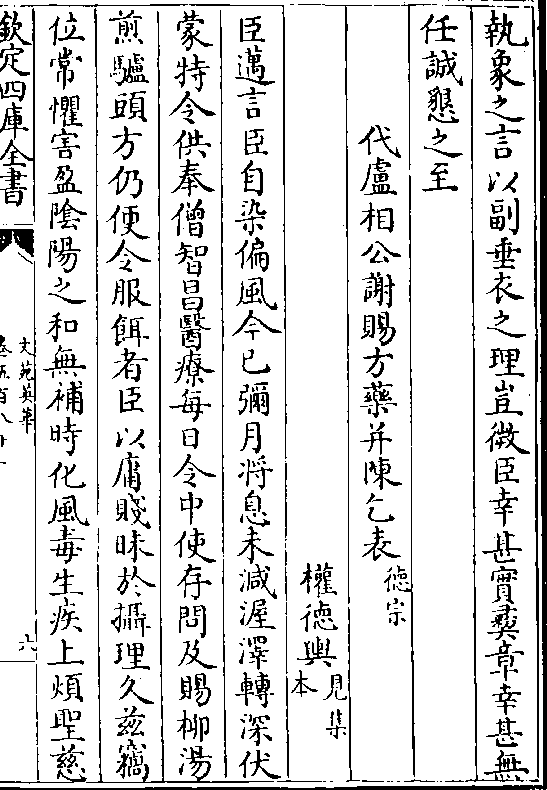 執象之言以副垂衣之理豈微臣幸甚實彞章幸甚無
任誠懇之至
代盧相公謝賜方藥并陳乞表
德宗
權德輿
見集
本
臣邁言臣自染偏風今已彌月將息未減渥澤轉深伏
蒙特令供奉僧智昌醫療每日令中使存問及賜柳湯
煎驢頭方仍便令服餌者臣以庸賤昧於攝理久兹竊
位常懼害盈陰陽之和無補時化風毒生疾上煩聖慈
欽定四庫全書
文苑英華
卷五百八十一
六